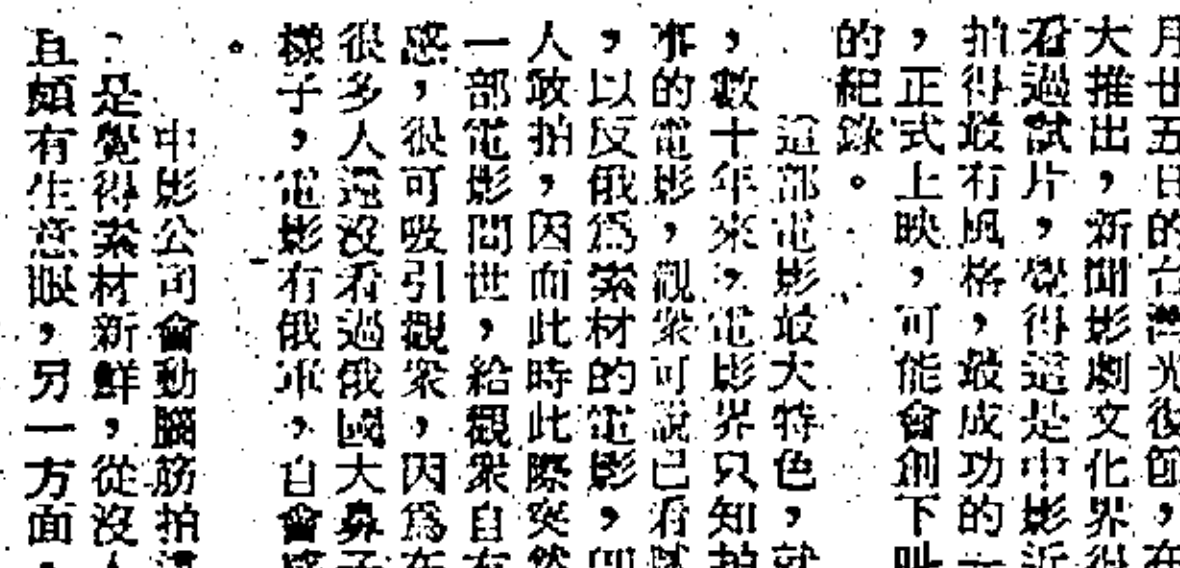 月廿五日的台灣光復節，在
大推出，新聞影劇文化界
看過試片，覺得這是中影近
拍得最有風格，最成功的一
，正式上映，可能會創下
的紀錄。
這部電影最大特色，就
，數十年來，電影界只知拍
事的電影，觀眾可說已看
，以反俄為素材的電影，
人敢拍，因而此時此際突然
一部電影問世，給觀眾自
感，很可吸引觀眾，因為在
很多人還沒看過俄國大鼻子
樣子，電影有俄軍，自會
。
中影公司會動腦筋拍
？是覺得素材新鮮，從沒人
且頗有生意眼，另一方面，